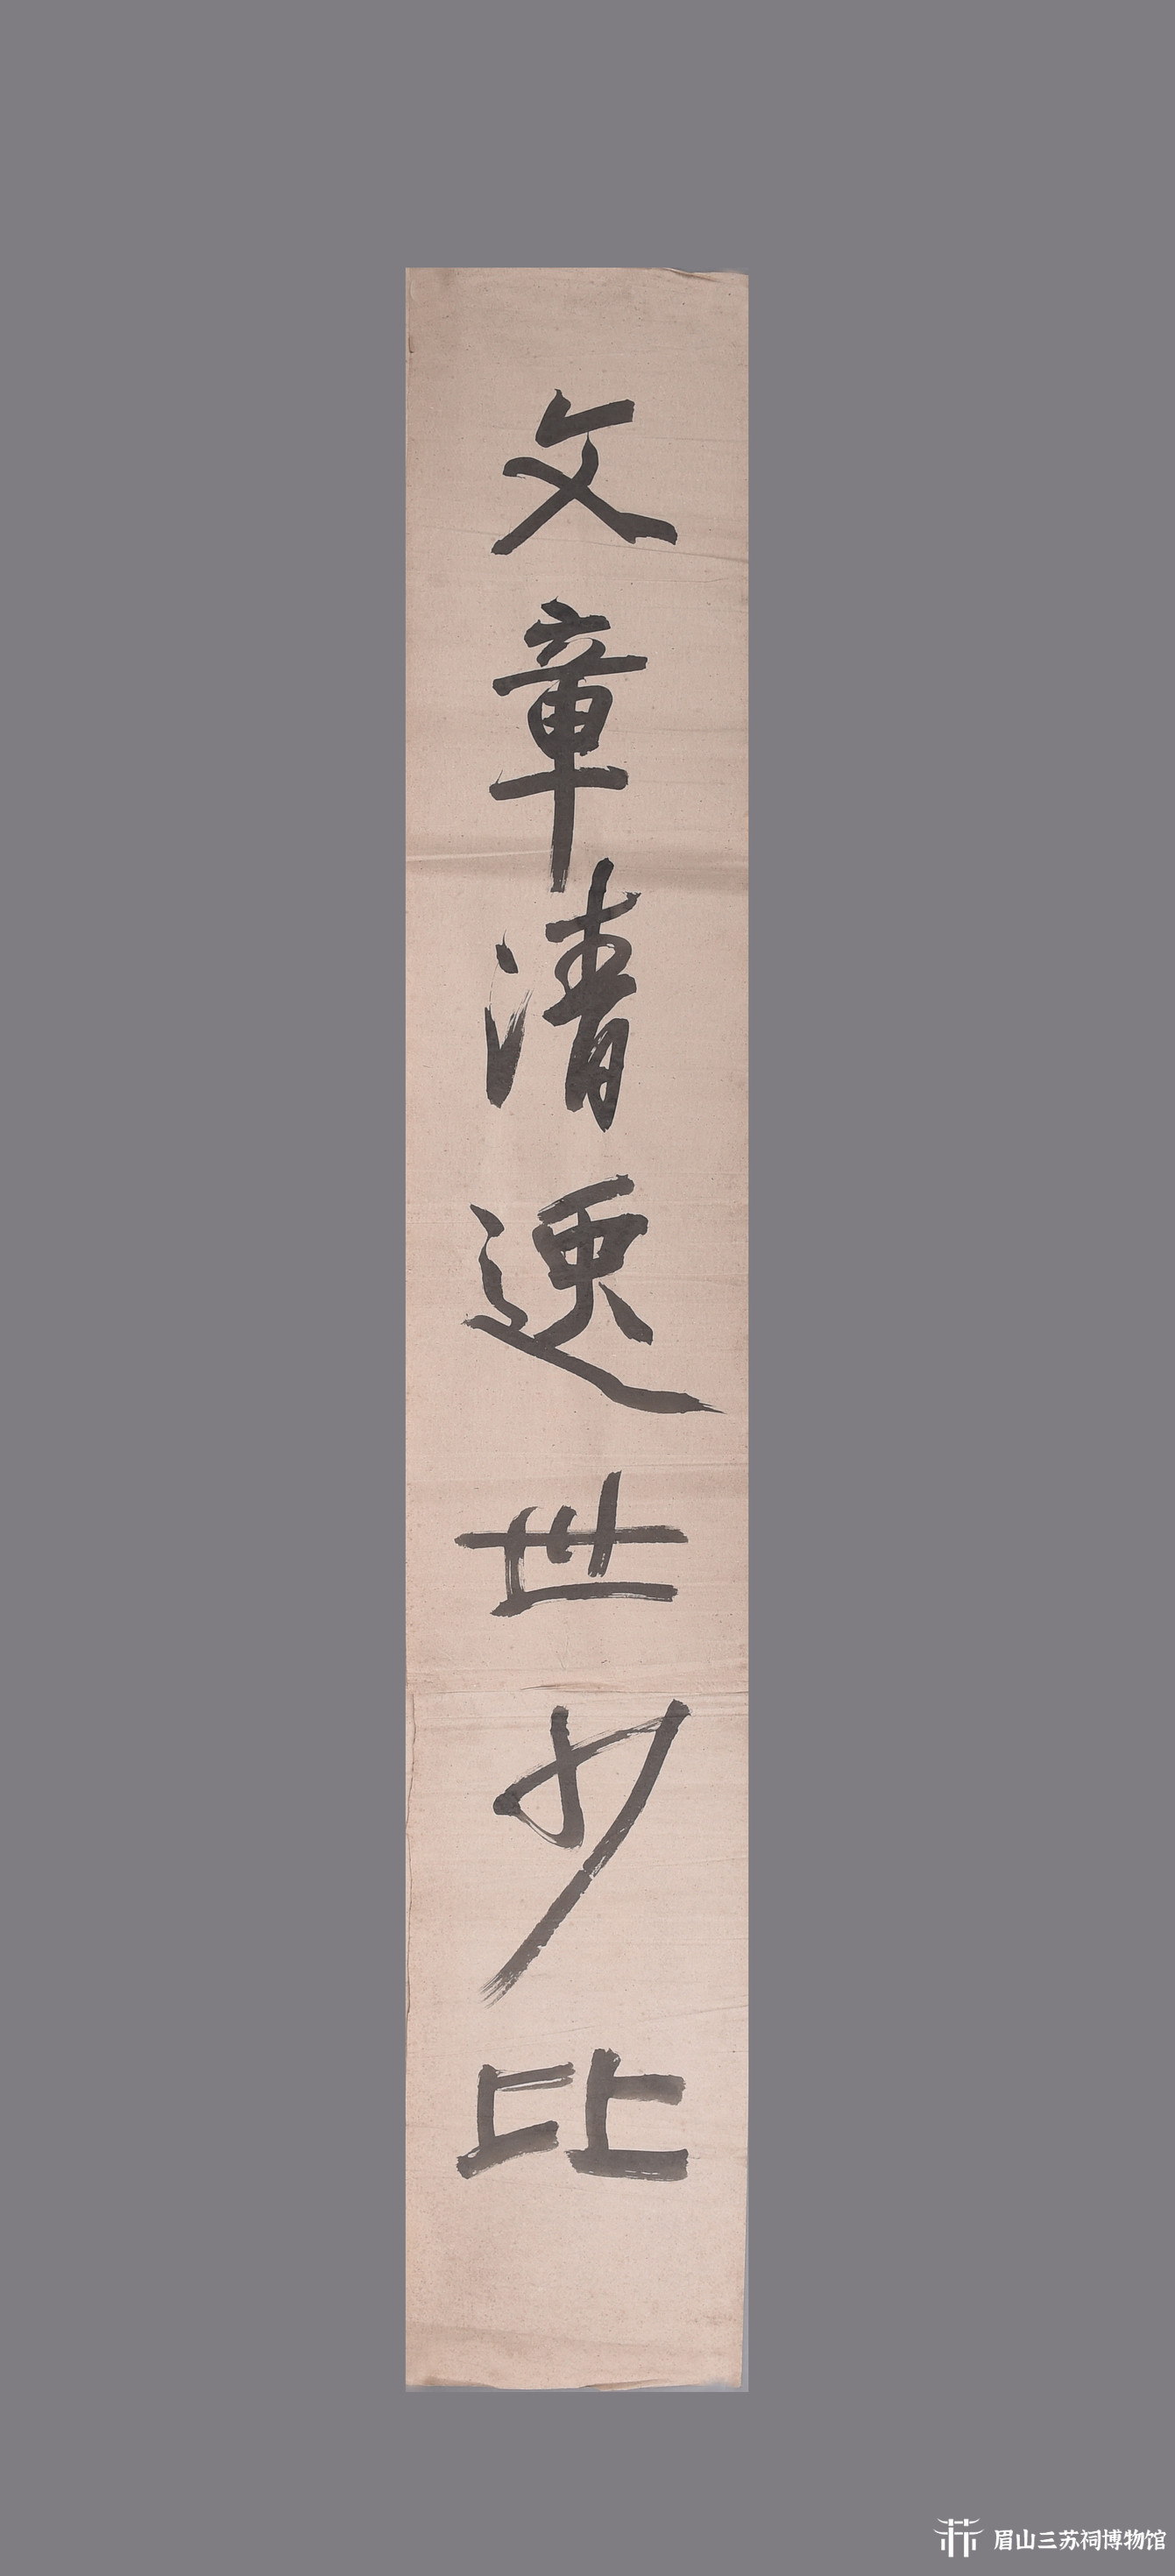 文章清逸世少比
眉山三苏祠博物馆